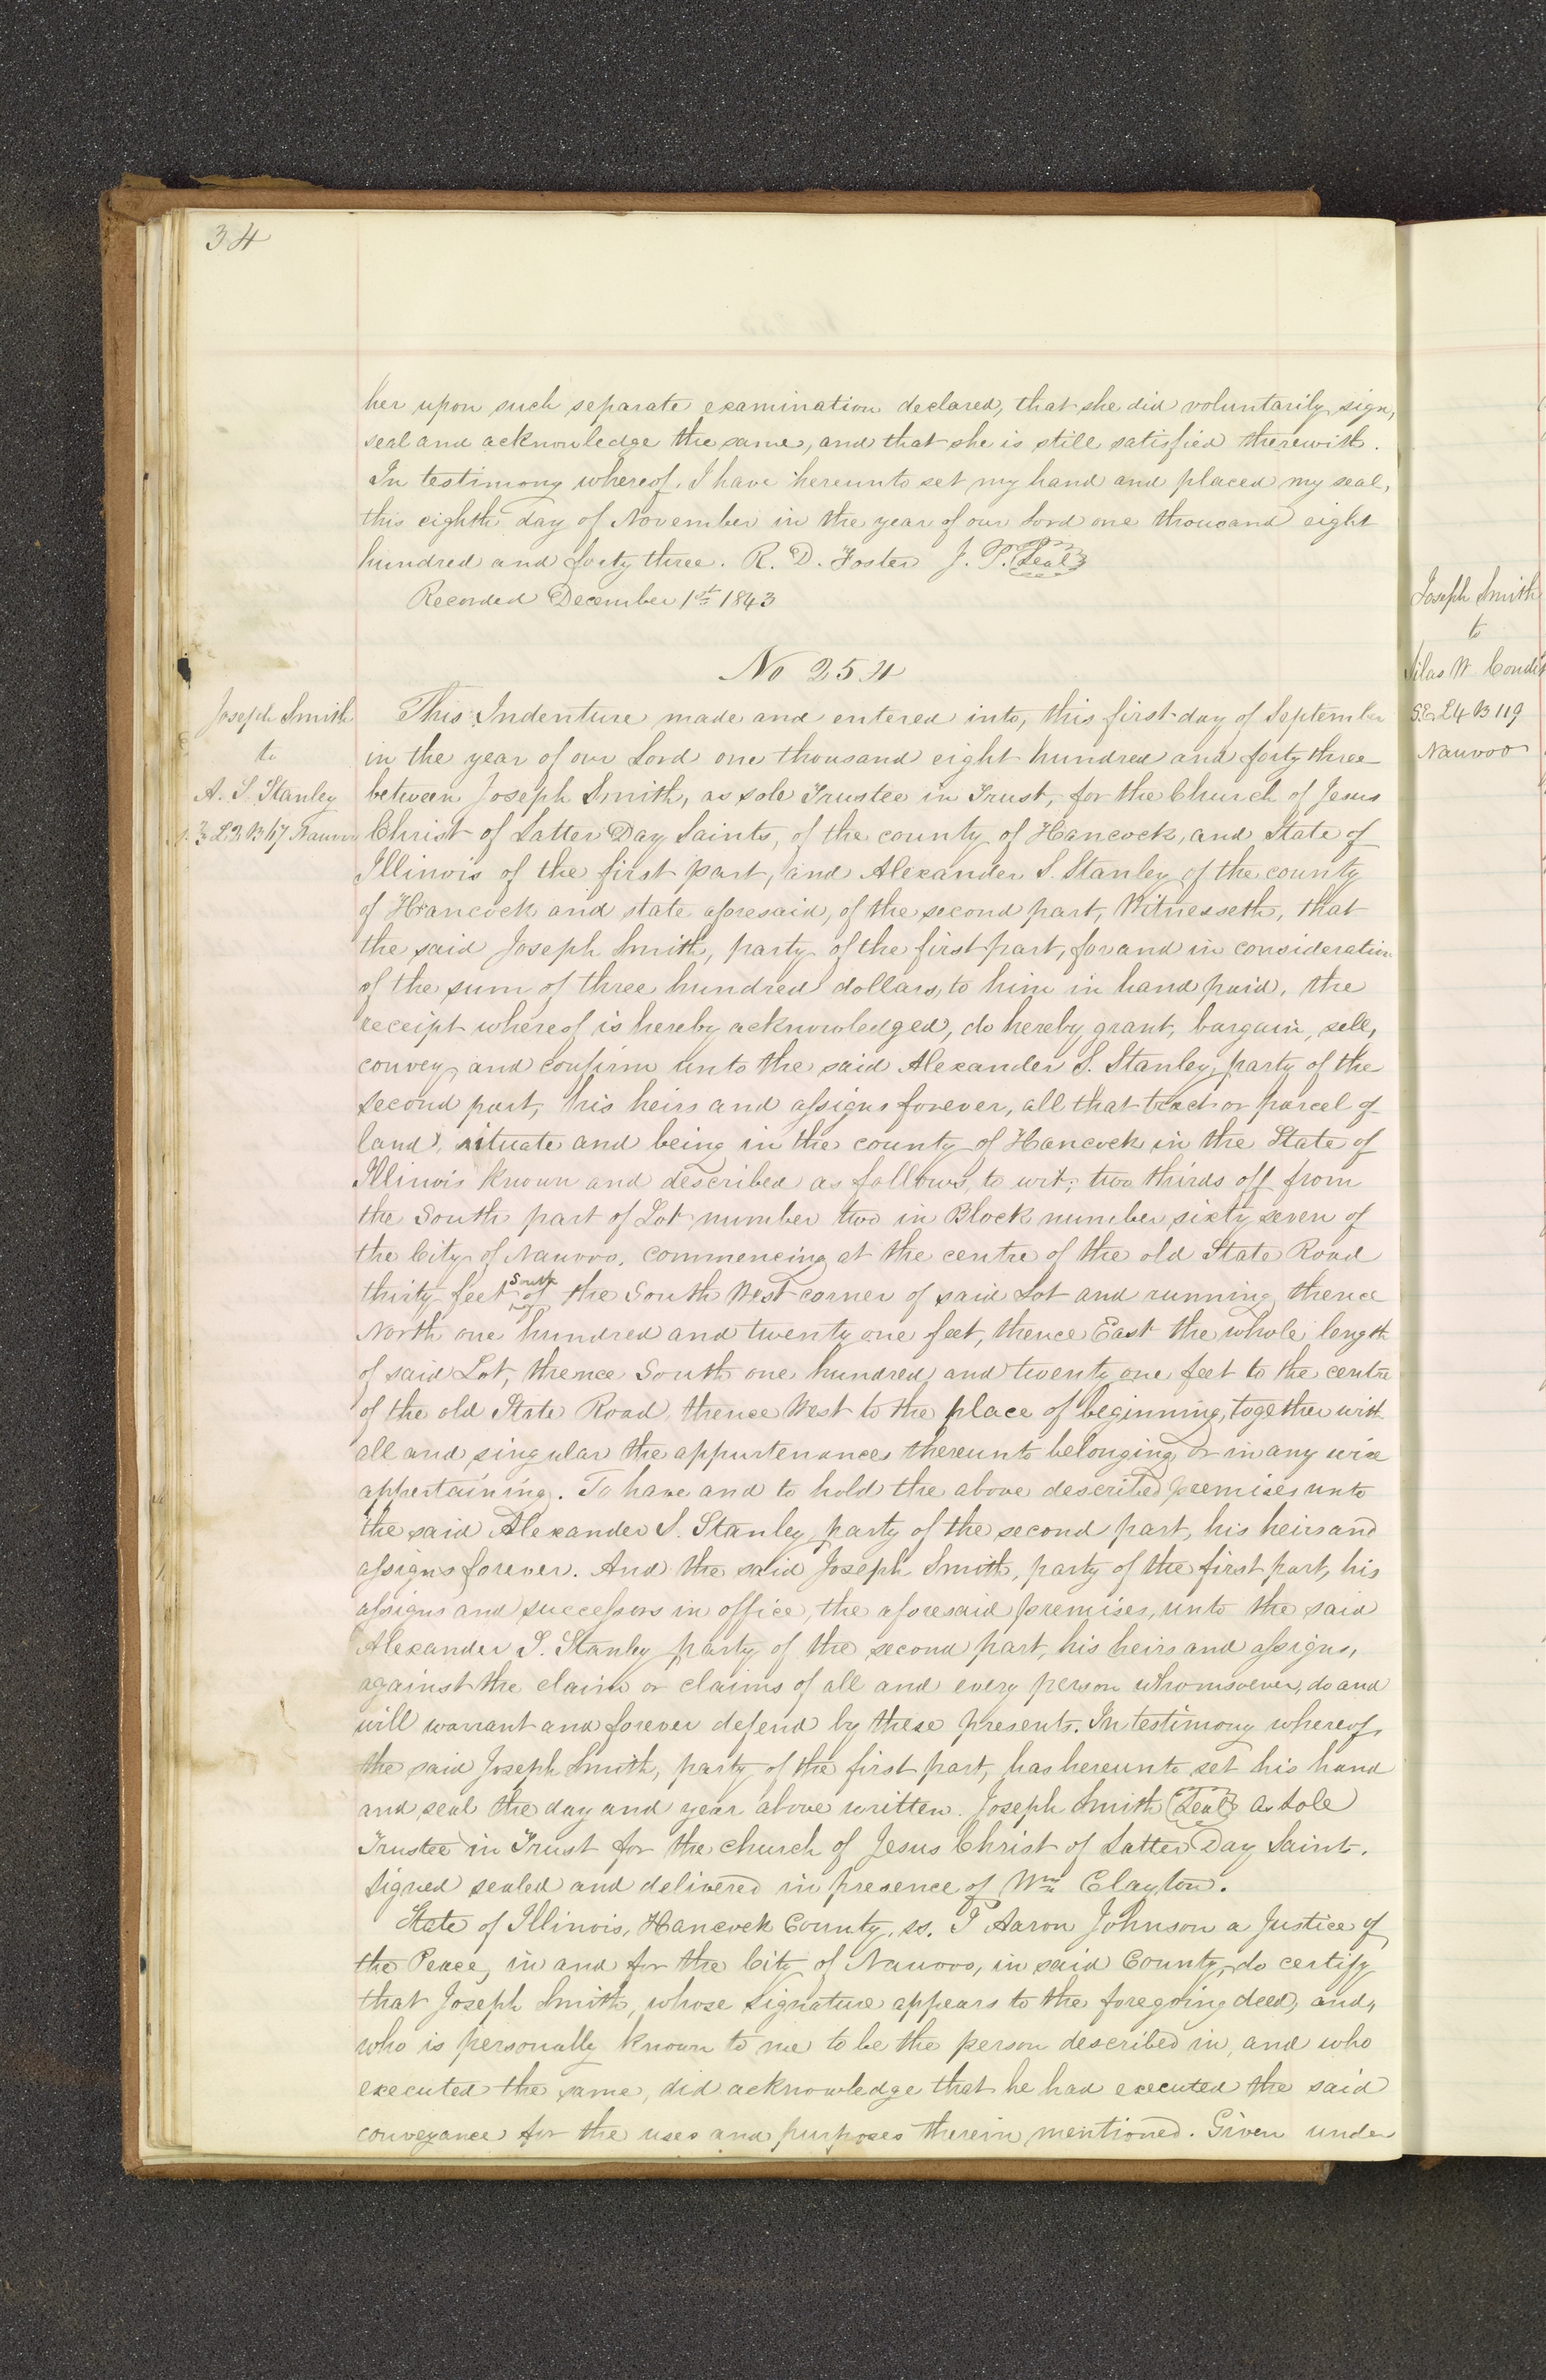 34
her upon such separate examination declared, that she did voluntarily sign,
seal and acknowledge the same, and that she is still satisfied therewith.
In testimony whereof, I have hereunto set my hand and placed my seal,
this eighth day of November in the year of our Lord one thousand eight
hundred and forty three. R. D. Foster J. P. Seal
Recorded December 1st 1843
No 254
Joseph Smith
to
A. S. Stanley
L 2 B 67 Nauvoo
This Indenture made and entered into, this first day of September
in the year of our Lord one thousand eight hundred and forty three
between Joseph Smith, as sole Trustee in Trust, for the Church of Jesus
Christ of Latter Day Saints, of the county of Hancock, and State of
Illinois of the first part, and Alexander S. Stanley of the county
of Hancock and state aforesaid, of the second part, Witnesseth, that
the said Joseph Smith, party of the first part, for and in consideration
of the sum of three hundred dollars, to him in hand paid, the
receipt whereof is hereby acknowledged, do hereby grant, bargain, sell,
convey, and confirm unto the said Alexander S. Stanley, party of the
second part, his heirs and assigns forever, all that tract or parcel of
land, situate and being in the county of Hancock in the State of
Illinois known and described as follows, to wit; two thirds off from
the South part of Lot number two in Block number sixty seven of
the City of Nauvoo, commencing at the centre of the old State Road
thirty feet south of the South West corner of said Lot and running thence
North one hundred and twenty one feet, thence East the whole length
of said Lot, thence South one hundred and twenty one feet to the centre
of the old State Road, thence West to the place of beginning, together with
all and singular the appurtenances thereunto belonging or in any wise
appertaining. To have and to hold the above described premises unto
the said Alexander S. Stanley, party of the second part, his heirs and
assigns forever. And the said Joseph Smith, party of the first part, his
assigns and successors in office, the aforesaid premises, unto the said
Alexander S. Stanley party of the second part, his heirs and assigns,
against the claim or claims of all and every person whomsoever, do and
will warrant and forever defend by these presents. In testimony whereof,
the said Joseph Smith, party of the first part, has hereunto set his hand
and seal the day and year above written. Joseph Smith Seal as Sole
Trustee in Trust for the church of Jesus Christ of Latter Day Saints.
Signed sealed and delivered in presence of Wm Clayton.
State of Illinois, Hancock County, ss. I Aaron Johnson a Justice of
the Peace, in and for the City of Nauvoo, in said County, do certify
that Joseph Smith, whose signature appears to the foregoing deed, and,
who is personally known to me to be the person described in, and who
executed the same, did acknowledge that he had executed the said
conveyance for the uses and purposes therein mentioned. Given under
Joseph Smith
to
Silas W
L 4 B 119
Nauvoo